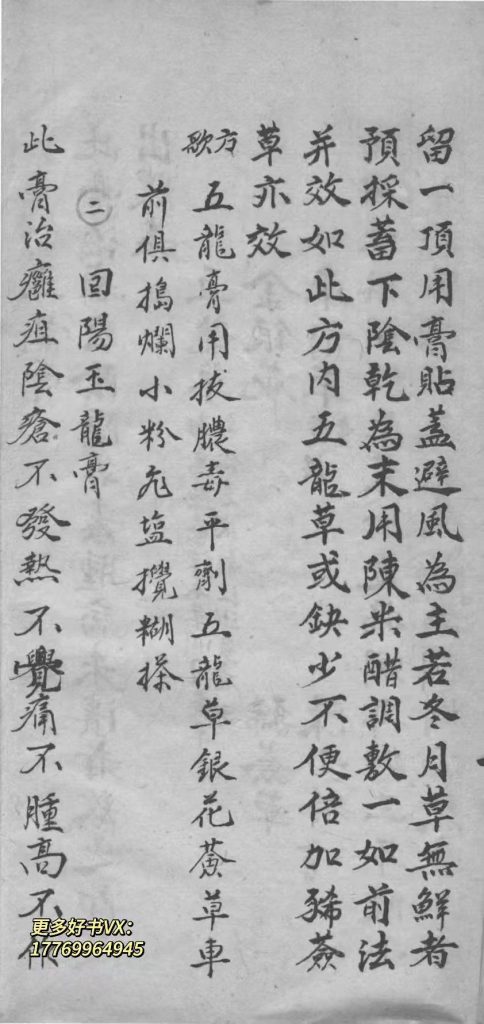 留一頂用膏貼蓋避風為主若冬月草無鮮者
預採蓄下陰乾為末用陳米醋調敷一如前法
并效如此方内五龍草或缺少不便倍加豨薟
草亦效
方歌 五龍膏用拔膿毒平劑五龍草銀花薟草車
前俱搗爛小粉飛塩攪糊搽
㊁ 回陽玉龍膏
此膏治癰疽陰瘡不發熱不覺痛不腫高不作
更多好书VX:
17769964945